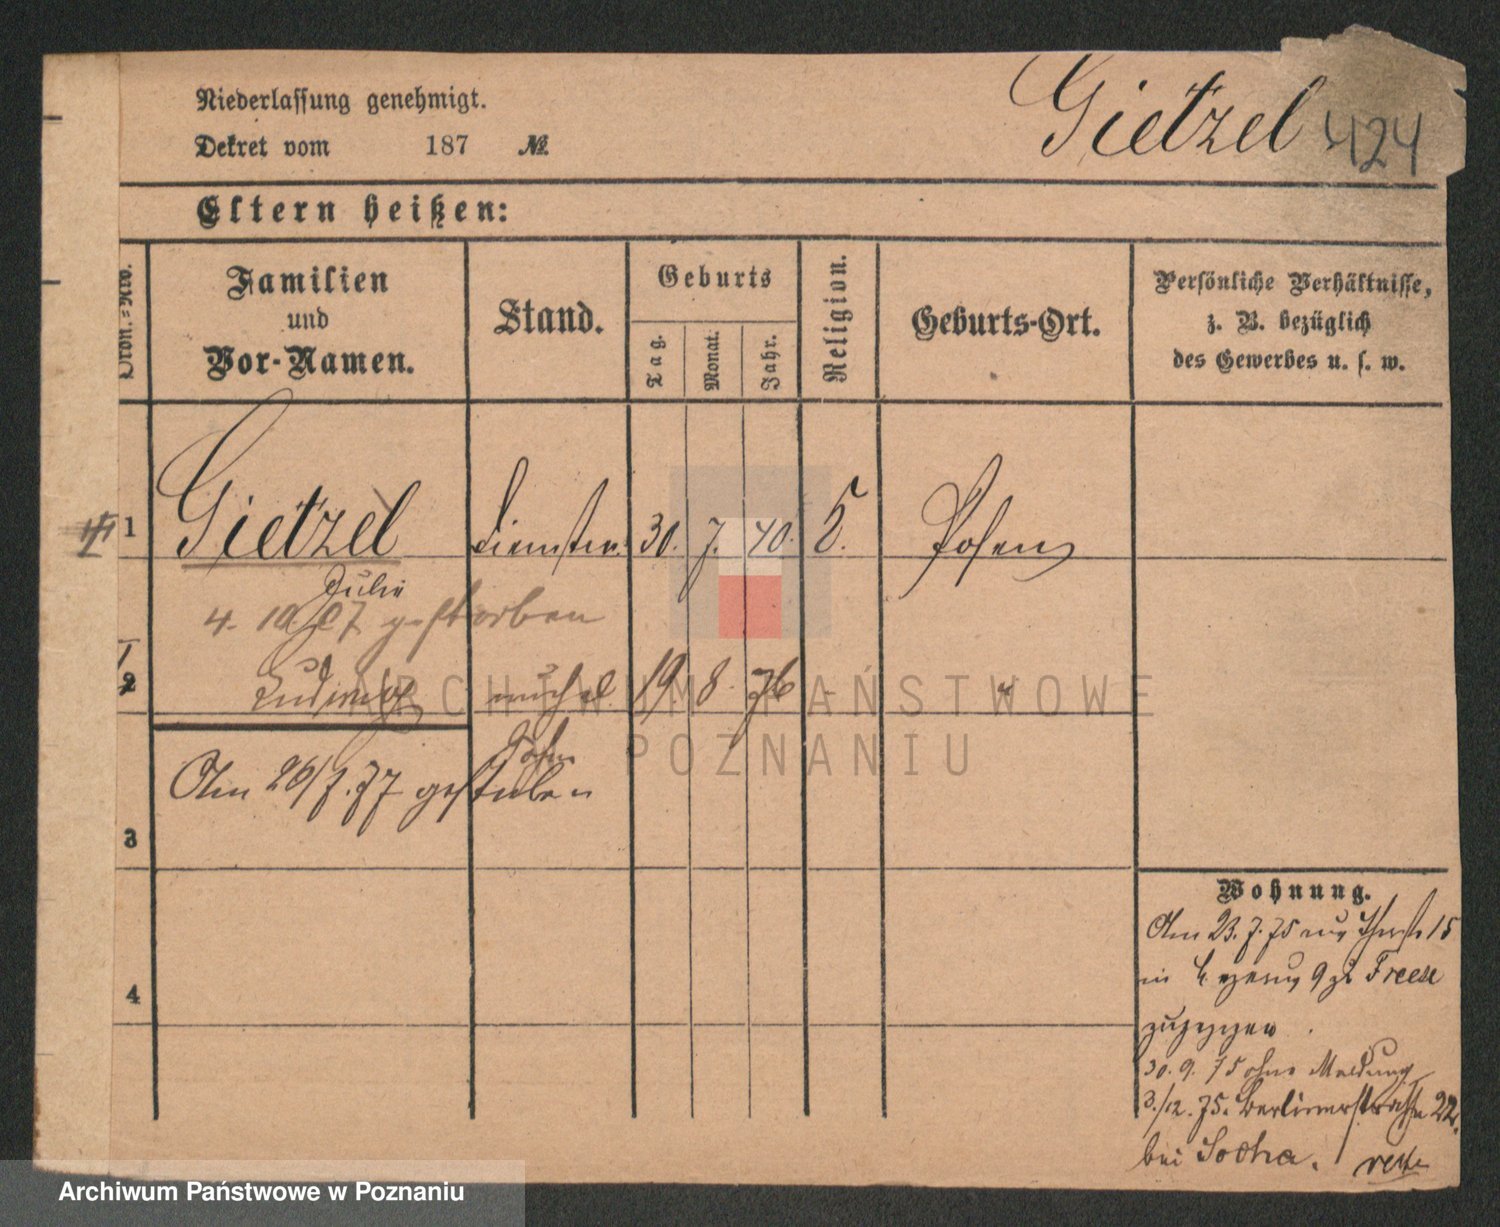 Niederlassung genehmigt.
Dekret vom 187 №
Gietzel 424
Eltern heißen:
Ordn.=Nro.
Familien
und
Vor-Namen.
Stand.
Geburts
Tag.
Monat.
Jahr.
Religion.
Geburts-Ort.
Persönliche Verhältnisse,
z. B. bezüglich
des Gewerbes u. s. w.
1 Gietzel 30. 7. 40. Posen
Julie
4. 10. 07 gestorben
2 Ludwig 19. 8. 76 "
Sohn
Am 26/7. 77 gestorben
3
4
Wohnung.
Am 23. 7. 75 15
in 9 zu Freese
30. 9. 75 ohne Meldung
3./12. 75. Berlinerstraße 22.
bei Socha.
ARCHIWUM PAŃSTWOWE
POZNANIU
Archiwum Państwowe w Poznaniu